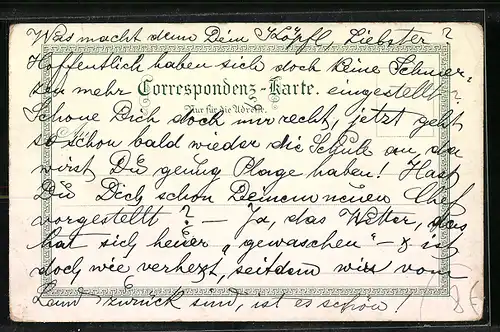 Was macht denn Dein Köpfl, Liebster?
Hoffentlich haben sich doch keine Schmer-
zen mehr Correspondenz-Karte. eingestellt?
Nur für die Adresse.
Schone Dich doch nur recht, jetzt geht
so schon bald wieder die Schule an, da
wirst Du genug Plage haben! Hast
Du Dich schon Deinem neuen Chef
vorgestellt? — Ja, das Wetter, das
hat sich heuer "gewaschen" — es ist
doch wie verhext, seitdem wir vom
Land zurück sind, ist es schön!